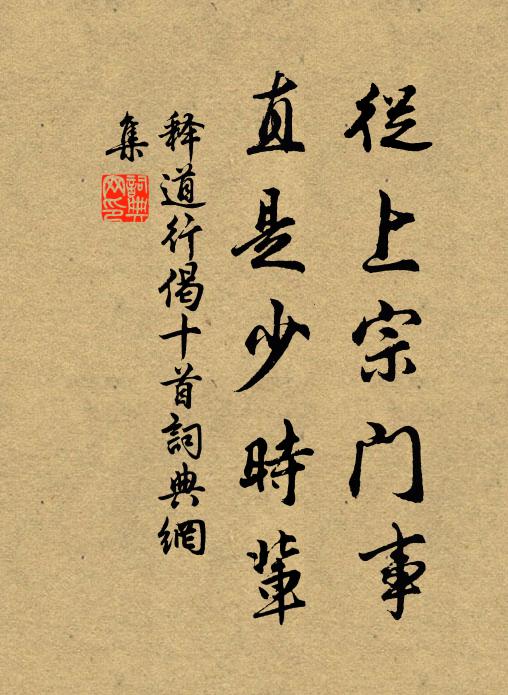 從上宗門事
直是少時輩
释道行偈十首詞典網
集
詞典網印